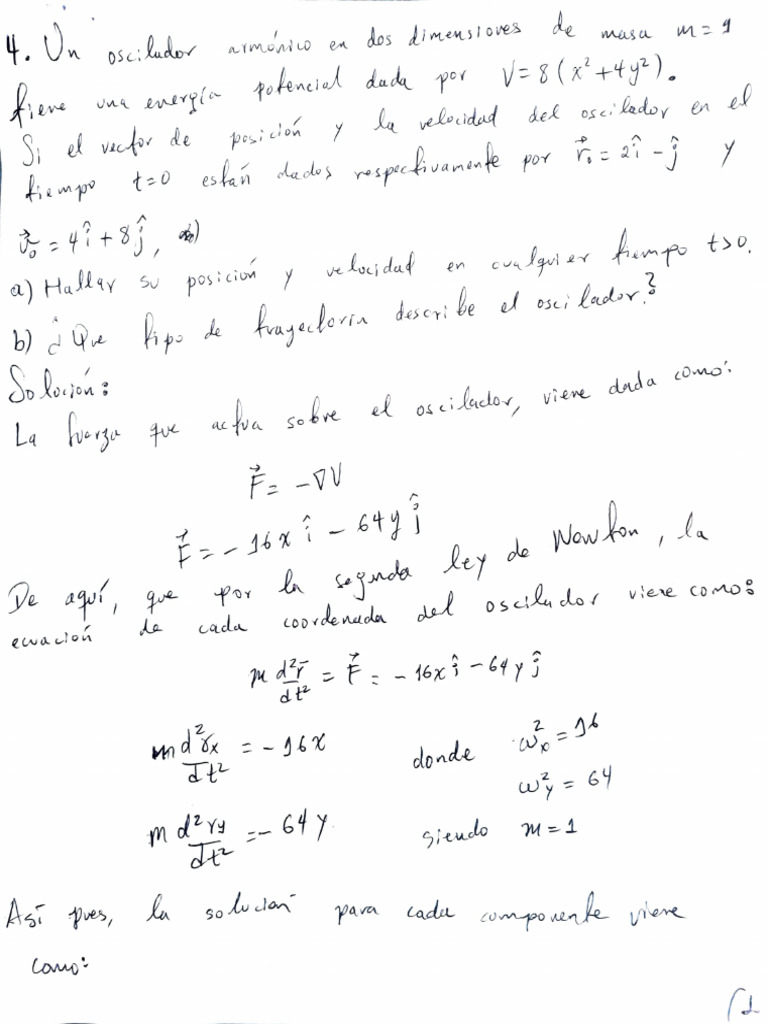 4. Un oscilador armónico en dos dimensiones de masa m=1
tiene una energía potencial dada por V=8(x²+4y²).
Si el vector de posición y la velocidad del oscilador en el
tiempo t=0 están dados respectivamente por r⃗₀=2î-ĵ y
v⃗₀=4î+8ĵ,
a) Hallar su posición y velocidad en cualquier tiempo t>0.
b) ¿Que tipo de trayectoria describe el oscilador?
Solución:
La fuerza que actua sobre el oscilador, viene dada como:
F⃗=-∇V
F⃗=-16x î - 64y ĵ
De aquí, que por la segunda ley de Newton, la
ecuación de cada coordenada del oscilador viene como:
m d²r⃗/dt² = F⃗ = -16x î - 64y ĵ
m d²rx/dt² = -16x donde ωx²=16
ωy²=64
m d²ry/dt² = -64y siendo m=1
Así pues, la solución para cada componente viene
como: